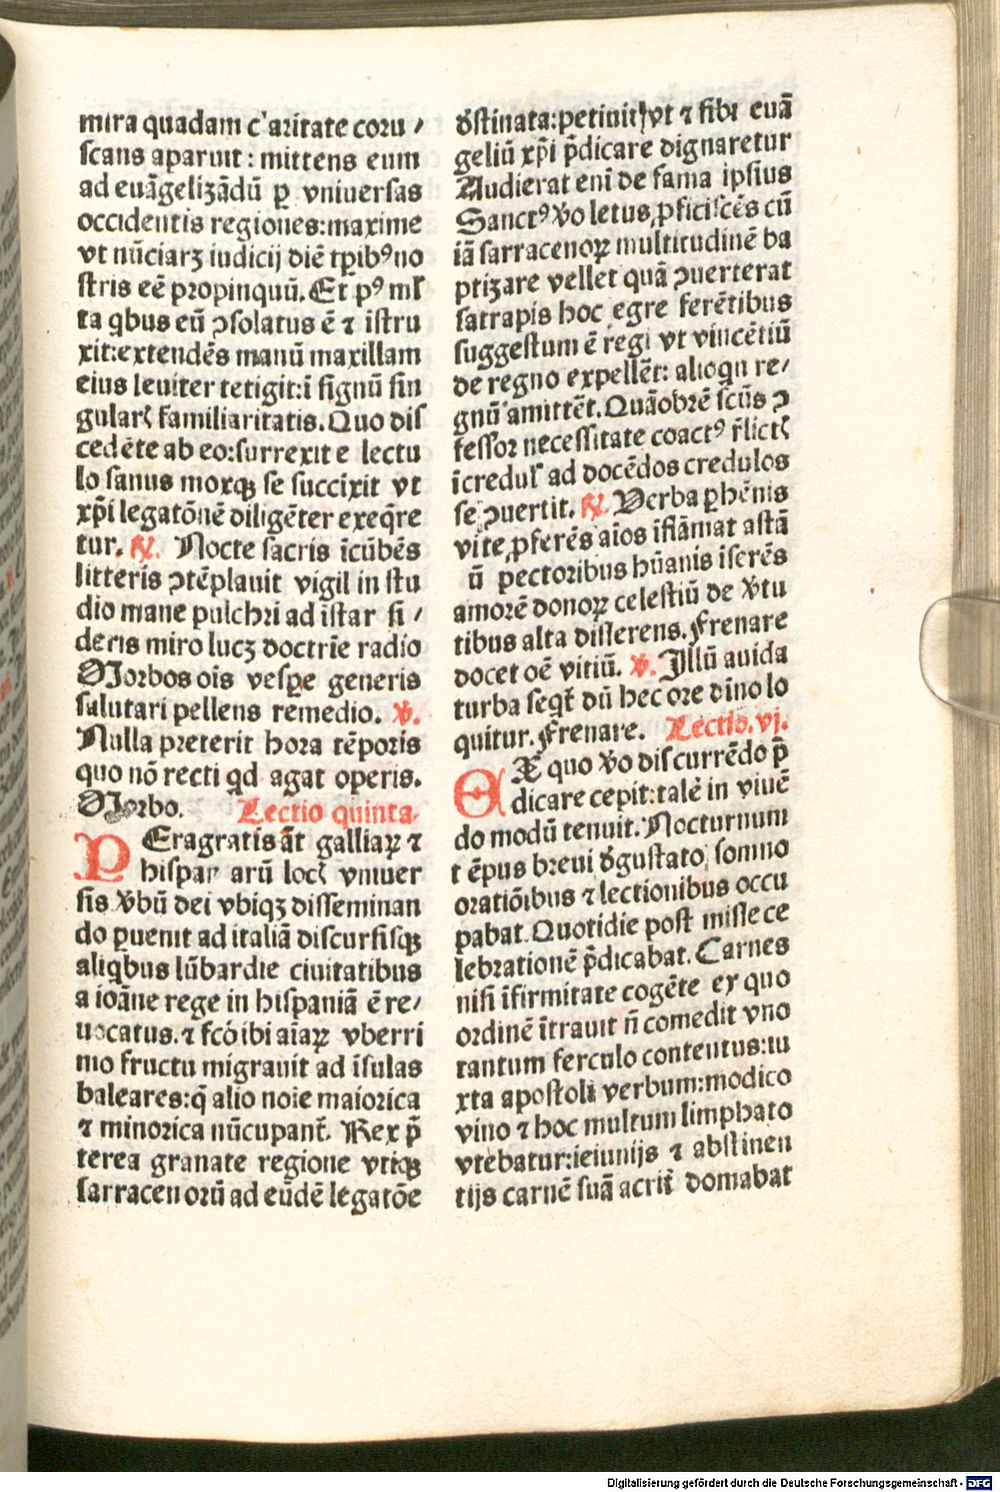 mira quadam c'aritate coru /
scans aparuit : mittens eum
ad euãgelizãdũ ꝑ vniuersas
occidentis regiones:maxime
vt nũciarꝫ iudicij diẽ tpibꝰno
stris eẽ propinquũ. Et pꝰ ml̃
ta qbus eũ ↄsolatus ẽ ⁊ ĩstru
xit:extendẽs manũ maxillam
eius leuiter tetigit:ĩ signũ sin
gularꝭ familiaritatis. Quo dis
cedẽte ab eo:surrexit e lectu
lo sanus moxqꝫ se succixit vt
xp̃i legatõnẽ diligẽter exeqre
tur. ℟. Nocte sacris ĩcũbẽs
litteris ↄtẽplauit vigil in stu
dio mane pulchri ad ĩstar si /
deris miro lucꝫ doctrĩe radio
Morbos ois vespe generis
salutari pellens remedio. ℣.
Nulla preterit hora tẽporis
quo nõ recti qd agat operis.
Morbo. Lectio quinta.
PEragratis ãt galliaꝝ ⁊
hispar arũ locꝭ vniuer
sis v̾bũ dei vbiqꝫ disseminan
do ꝑuenit ad italiã discursisqꝫ
aliqbus lũbardie ciuitatibus
a ioãne rege in hispaniã ẽ re/
uocatus. ⁊ fcõ ibi aĩaꝝ vberri
mo fructu migrauit ad ĩsulas
baleares:q̃ alio noie maiorica
⁊ minorica nũcupant̃. Rex p̃
terea granate regione vtiqꝫ
sarracenorũ ad eũdẽ legatõe
d̾stinata:petiuit vt ⁊ sibi euã
geliũ xp̃i p̃dicare dignaretur
Audierat eni de fama ipsius
Sanctꝰ v̾o letus ꝓficiscẽs cũ
iã sarracenoꝝ multitudinẽ ba
ptizare vellet quã ↄuerterat
satrapis hoc egre ferẽtibus
suggestum ẽ regi vt vincẽtiũ
de regno expellẽt: alioqn re/
gnũ amittẽt. Quãobrẽ scũs ↄ
fessor necessitate coactꝰ r̃lictꝭ
ĩcredul' ad docẽdos credulos
se ↄuertit. ℟. Verba ꝑhẽnis
vite ꝓferẽs aĩos ĩflãmat astã
ũ pectoribus hũanis ĩserẽs
amorẽ donoꝝ celestiũ de v̾tu
tibus alta disserens. Frenare
docet oẽ vitiũ. ℣. Illũ auida
turba seqt̃ dũ hec ore dĩno lo
quitur. Frenare. Lectio. vj.
EX quo v̾o discurrẽdo p̃
dicare cepit:talẽ in viuẽ
do modũ tenuit. Nocturnum
t ẽpus breui d̾gustato somno
oratiõibus ⁊ lectionibus occu
pabat. Quotidie post misse ce
lebrationẽ p̃dicabat. Carnes
nisi ĩfirmitate cogẽte ex quo
ordinẽ ĩtrauit ñ comedit vno
tantum ferculo contentus:iu
xta apostoli verbum:modico
vino ⁊ hoc multum limphato
vtebatur:ieiunijs ⁊ abstinen
tijs carnẽ suã acrit̃ domabat
Digitalisierung gefördert durch die Deutsche Forschungsgemeinschaft - DFG